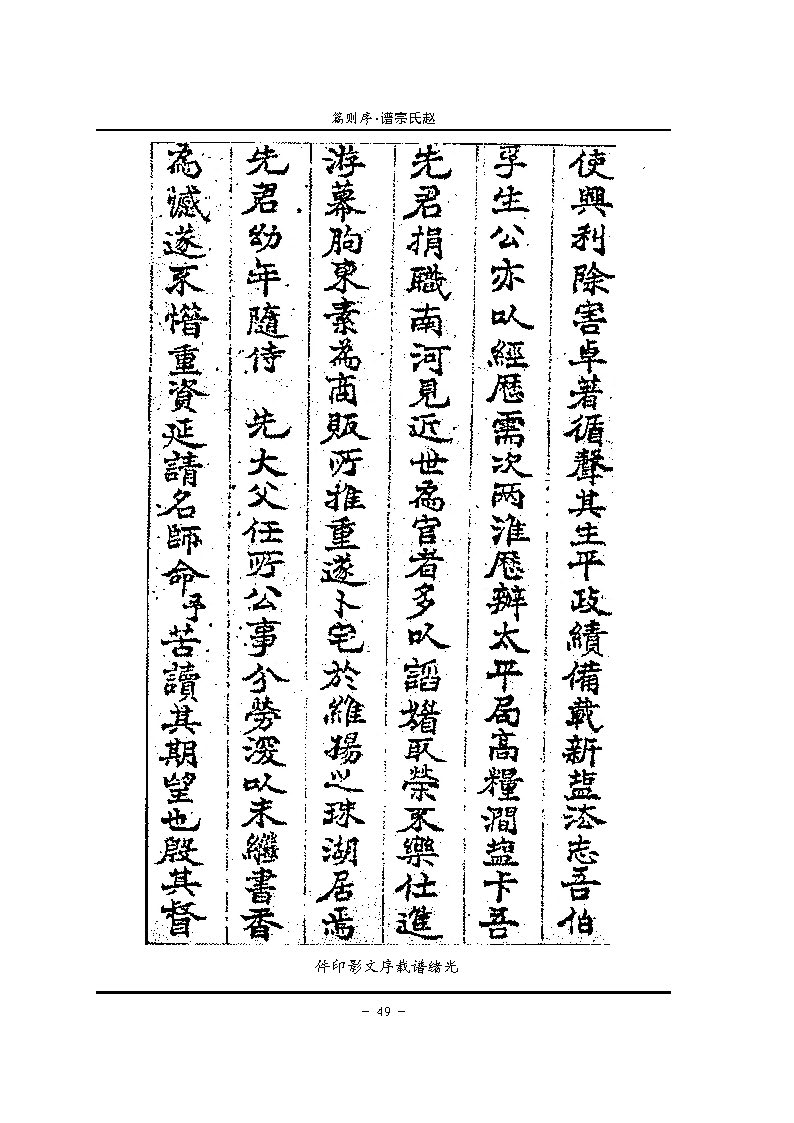 赵氏宗谱·序则篇
使興利除害卓著循聲其生平政績備載新盐法志吾伯
孚生公亦以經歷需次两淮歷辦太平局高糧澗盐卡吾
先君捐職南河見近世為官者多以謟媚取荣不樂仕進
游幕朐東素為商販所推重遂卜宅於維揚之珠湖居焉
先君幼年隨侍 先大父任所公事分勞深以未繼書香
為憾遂不惜重資延請名師命予苦讀其期望也殷其督
光绪谱载序文影印件
- 49 -